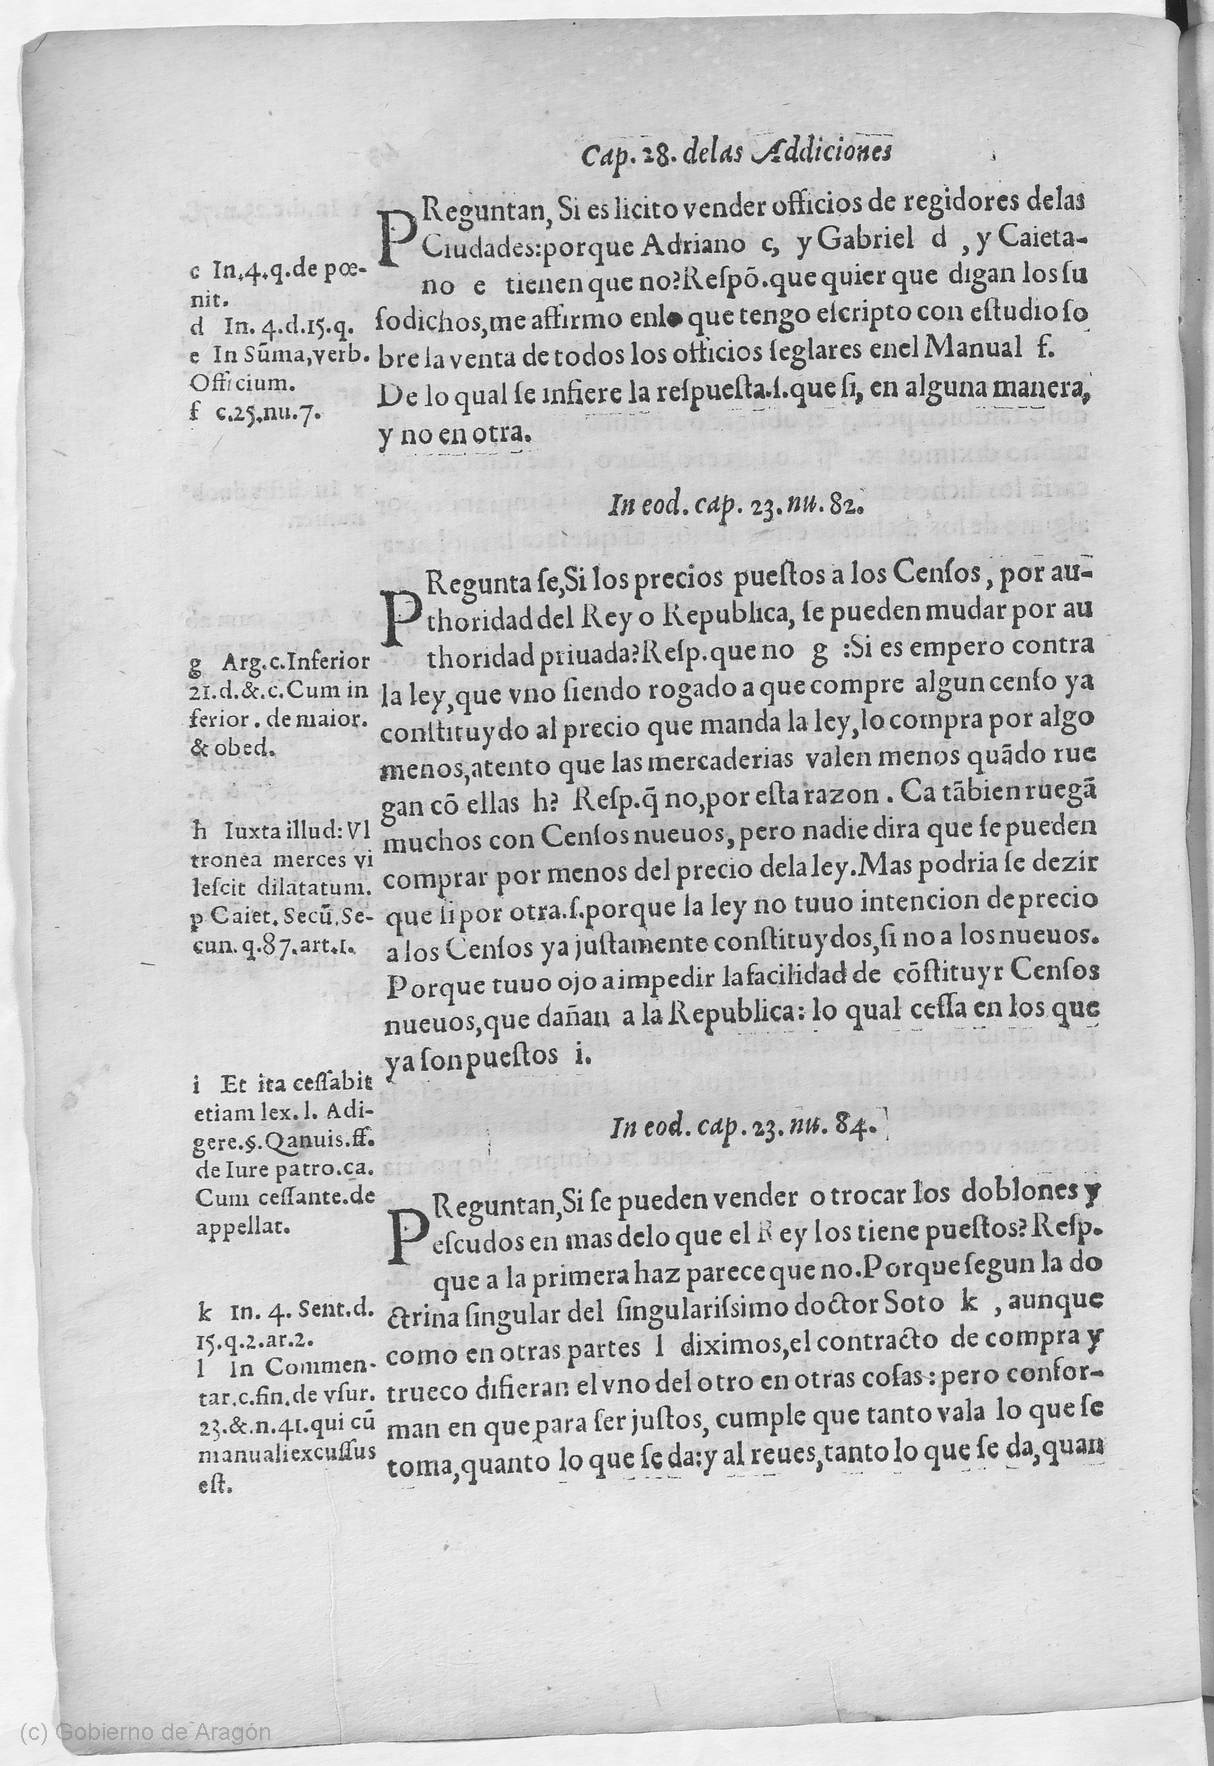 Cap. 28. delas Addiciones
PReguntan, Si es licito vender officios de regidores delas
Ciudades:porque Adriano c, y Gabriel d , y Caieta-
no e tienen que no?Reſpõ.que quier que digan los ſu
ſodichos,me affirmo enlo que tengo eſcripto con eſtudio ſo
bre la venta de todos los officios ſeglares enel Manual f.
De lo qual ſe infiere la reſpueſta.ſ.que ſi, en alguna manera,
y no en otra.
c In.4.q.de pœ-
nit.
d In. 4.d.15.q.
e In Sũma,verb.
Officium.
f c.25.nu.7.
In eod. cap. 23. nu. 82.
PRegunta ſe,Si los precios pueſtos a los Cenſos, por au-
thoridad del Rey o Republica, ſe pueden mudar por au
thoridad priuada?Reſp.que no g :Si es empero contra
la ley,que vno ſiendo rogado a que compre algun cenſo ya
conſtituydo al precio que manda la ley,lo compra por algo
menos,atento que las mercaderias valen menos quãdo rue
gan cõ ellas h? Reſp.q̃ no,por eſta razon . Ca tãbien ruegã
muchos con Cenſos nueuos, pero nadie dira que ſe pueden
comprar por menos del precio dela ley.Mas podria ſe dezir
que ſi por otra.ſ.porque la ley no tuuo intencion de precio
a los Cenſos ya juſtamente conſtituydos,ſi no a los nueuos.
Porque tuuo ojo a impedir la facilidad de cõſtituyr Cenſos
nueuos,que dañan a la Republica: lo qual ceſſa en los que
ya ſon pueſtos i.
g Arg.c.Inferior
21.d.&.c.Cum in
ferior . de maior.
& obed.
h Iuxta illud: Vl
tronea merces vi
leſcit dilatatum.
p Caiet. Secũ.Se-
cun. q.87.art.1.
i Et ita ceſſabit
etiam lex. 1. Adi-
gere.§.Qanuis.ff.
de Iure patro.ca.
Cum ceſſante.de
appellat.
In eod. cap. 23. nu. 84.
PReguntan,Si ſe pueden vender o trocar los doblones y
eſcudos en mas delo que el Rey los tiene pueſtos? Reſp.
que a la primera haz parece que no.Porque ſegun la do
ctrina ſingular del ſingulariſsimo doctor Soto k , aunque
como en otras partes l diximos,el contracto de compra y
trueco difieran el vno del otro en otras coſas: pero confor-
man en que para ſer juſtos, cumple que tanto vala lo que ſe
toma,quanto lo que ſe da:y al reues,tanto lo que ſe da,quan
k In. 4. Sent.d.
15.q.2.ar.2.
l In Commen-
tar.c.fin.de vſur.
23.&.n.41.qui cũ
manuali excuſſus
eſt.
(c) Gobierno de Aragón